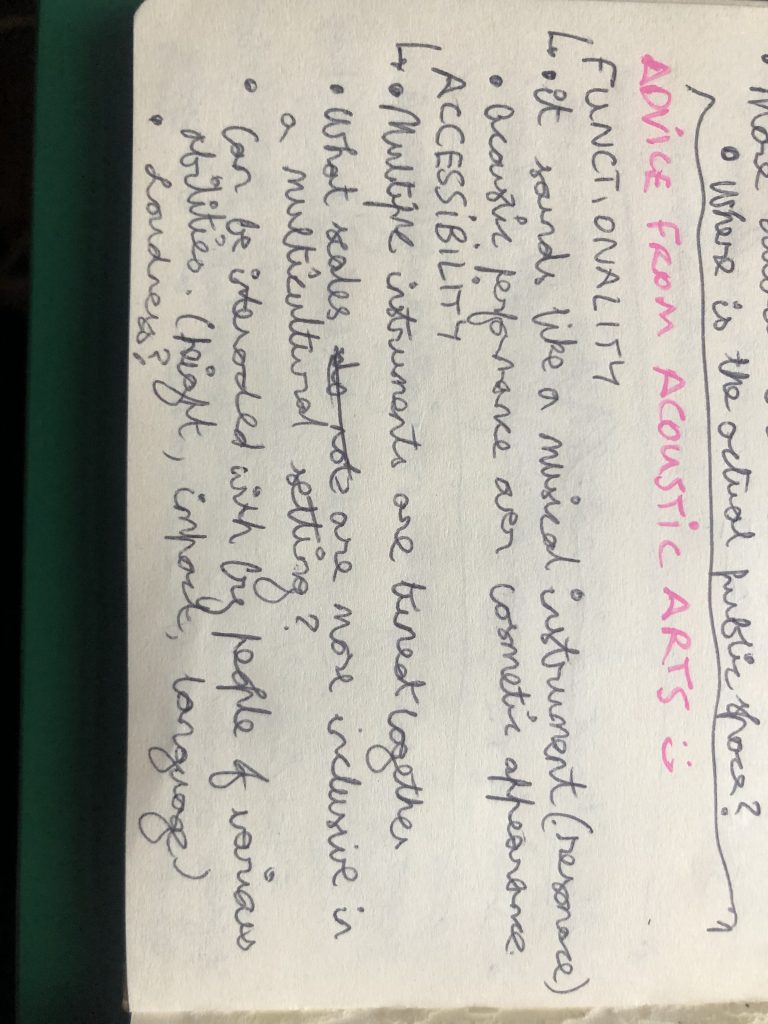 • More
• Where is the actual public space?
ADVICE FROM ACOUSTIC ARTS :)
FUNCTIONALITY
↳ • it sounds like a musical instrument (resonace)
• acoustic performance over cosmetic appearance.
ACCESSIBILITY
↳ • Multiple instruments are tuned together
• What scales do not are more inclusive in
a multicultural setting?
• Can be interacted with by people of various
abilities. (height, impact, language)
• Loudness?